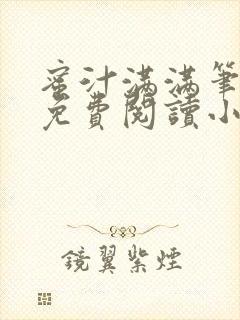 蜜汁满满笔
免費閱讀小
鏡翼紫煙